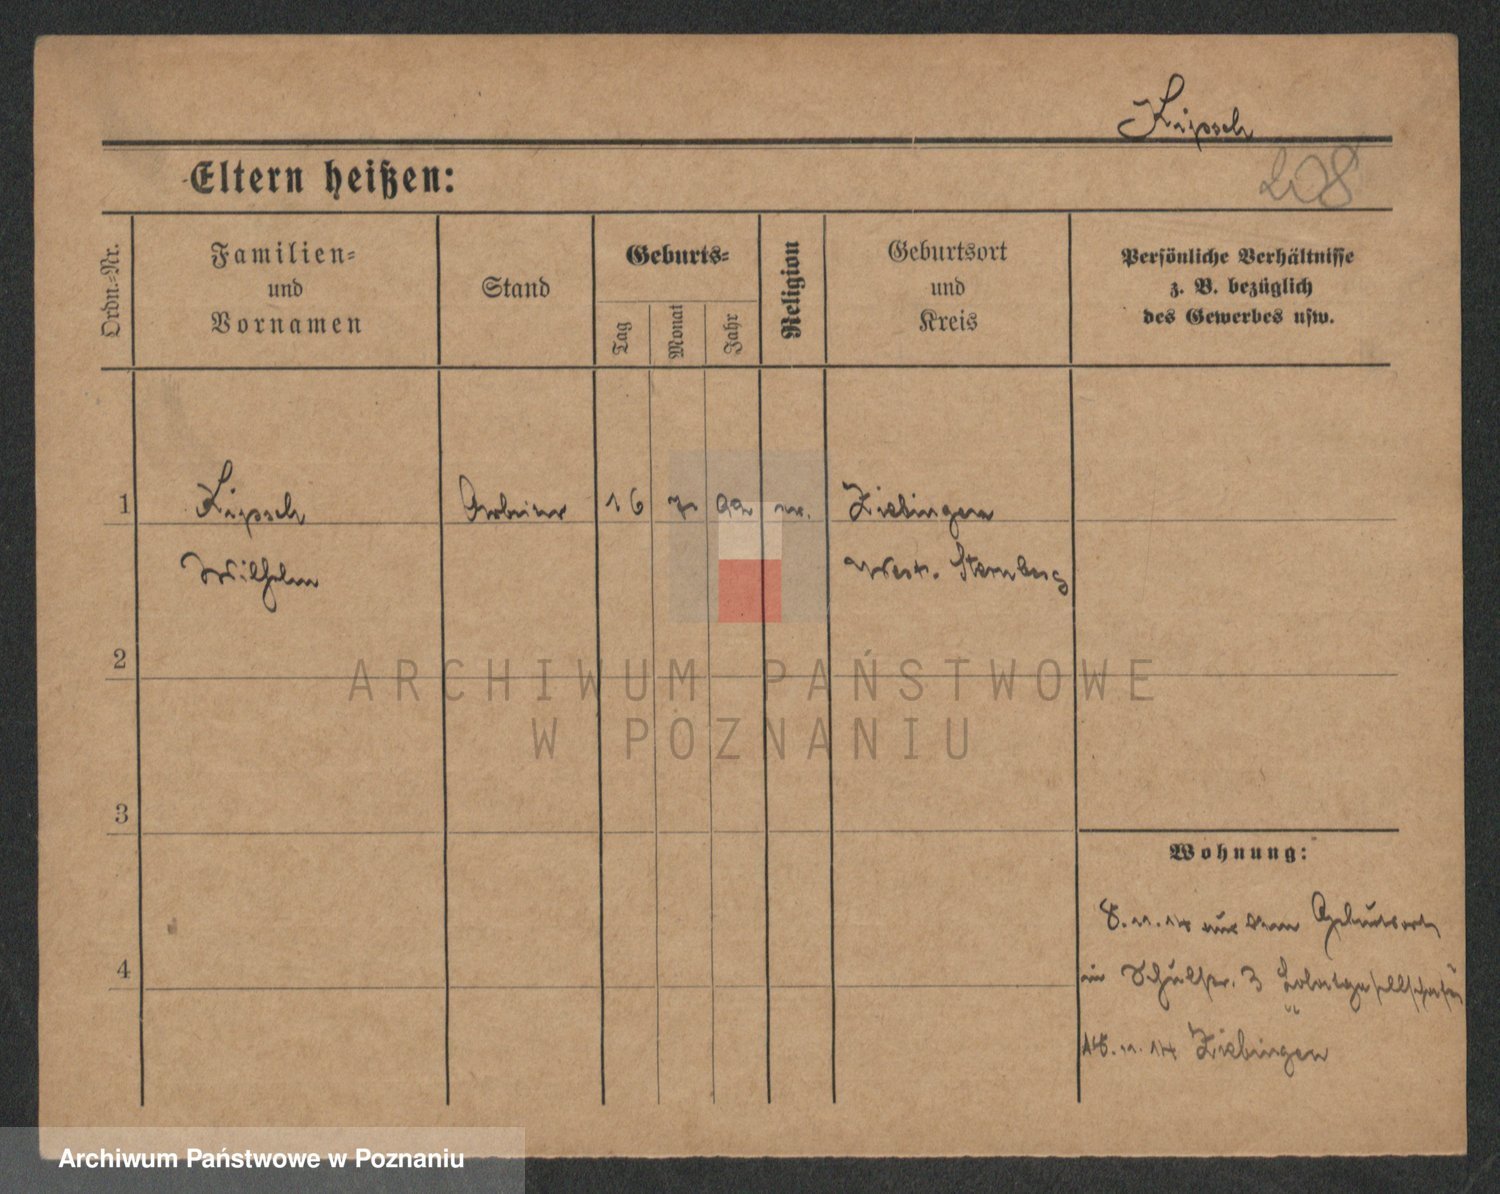 Kipsch
208
Eltern heißen:
Ordn.-Nr.
Familien-
und
Vornamen
Stand
Geburts-
Tag
Monat
Jahr
Religion
Geburtsort
und
Kreis
Persönliche Verhältnisse
z. B. bezüglich
des Gewerbes usw.
1 Kipsch Arbeiter 16 7 92 ev. Ziebingen
Wilhelm West. Sternberg
2
3
4
Wohnung:
8.11.14 aus dem Geburtsort
in Schulstr. 3
18.11.14 Ziebingen
ARCHIWUM PAŃSTWOWE
W POZNANIU
Archiwum Państwowe w Poznaniu